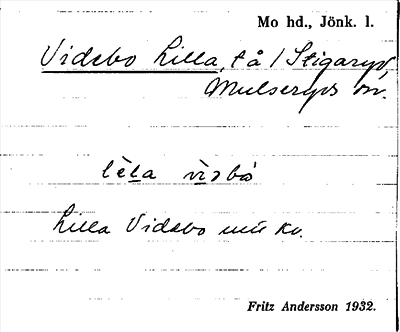 Mo hd., Jönk. l.
Vidsbo Lilla, t å / Stigaryd,
Mulseryds sn.
lèla vìsbo
Lilla Vidsbo
Fritz Andersson 1932.